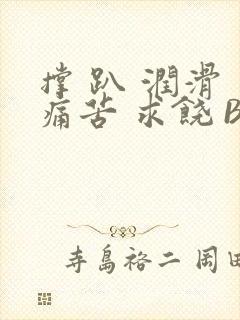 撑 趴 潤滑
痛苦 求饒 B
寺島裕二 岡田